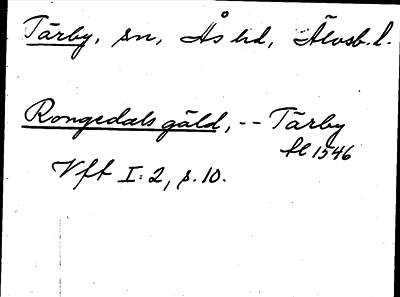 Tärby, sn, Ås hd, Älvsb. l.
Rongedals gäld, -- Tärby
fl 1546
Vft I: 2, s. 10.